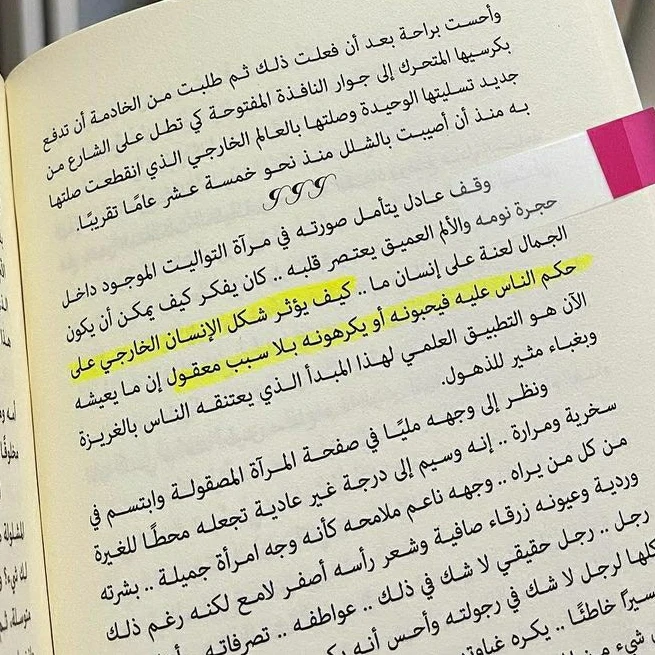 وأحست براحة بعد أن فعلت ذلك ثم طلبت من الخادمة أن تدفع
بكرسيها المتحرك إلى جوار النافذة المفتوحة كي تطل على الشارع من
جديد تسليتها الوحيدة وصلتها بالعالم الخارجي الذي انقطعت صلتها
به منذ أن أصيبت بالشلل منذ نحو خمسة عشر عامًا تقريبًا.
وقف عادل يتأمل صورته في مرآة التواليت الموجود داخل
حجرة نومه والألم العميق يعتصر قلبه .. كان يفكر كيف يمكن أن يكون
الجمال لعنة على إنسان ما .. كيف يؤثر شكل الإنسان الخارجي على
حكم الناس عليه فيحبونه أو يكرهونه بلا سبب معقول إن ما يعيشه
الآن هو التطبيق العلمي لهذا المبدأ الذي يعتنقه الناس بالغريزة
وبغباء مثير للذهول.
ونظر إلى وجهه مليًا في صفحة المرآة المصقولة وابتسم في
سخرية ومرارة .. إنه وسيم إلى درجة غير عادية تجعله محطًا للغيرة
من كل من يراه .. وجهه ناعم ملامحه كأنه وجه امرأة جميلة .. بشرته
وردية وعيونه زرقاء صافية وشعر رأسه أصفر لامع لكنه رغم ذلك
رجل .. رجل حقيقي لا شك في ذلك .. عواطفه .. تصرفاته ..
كلها لرجل لا شك في رجولته وأحس أنه
خاطئًا .. يكره غباوته